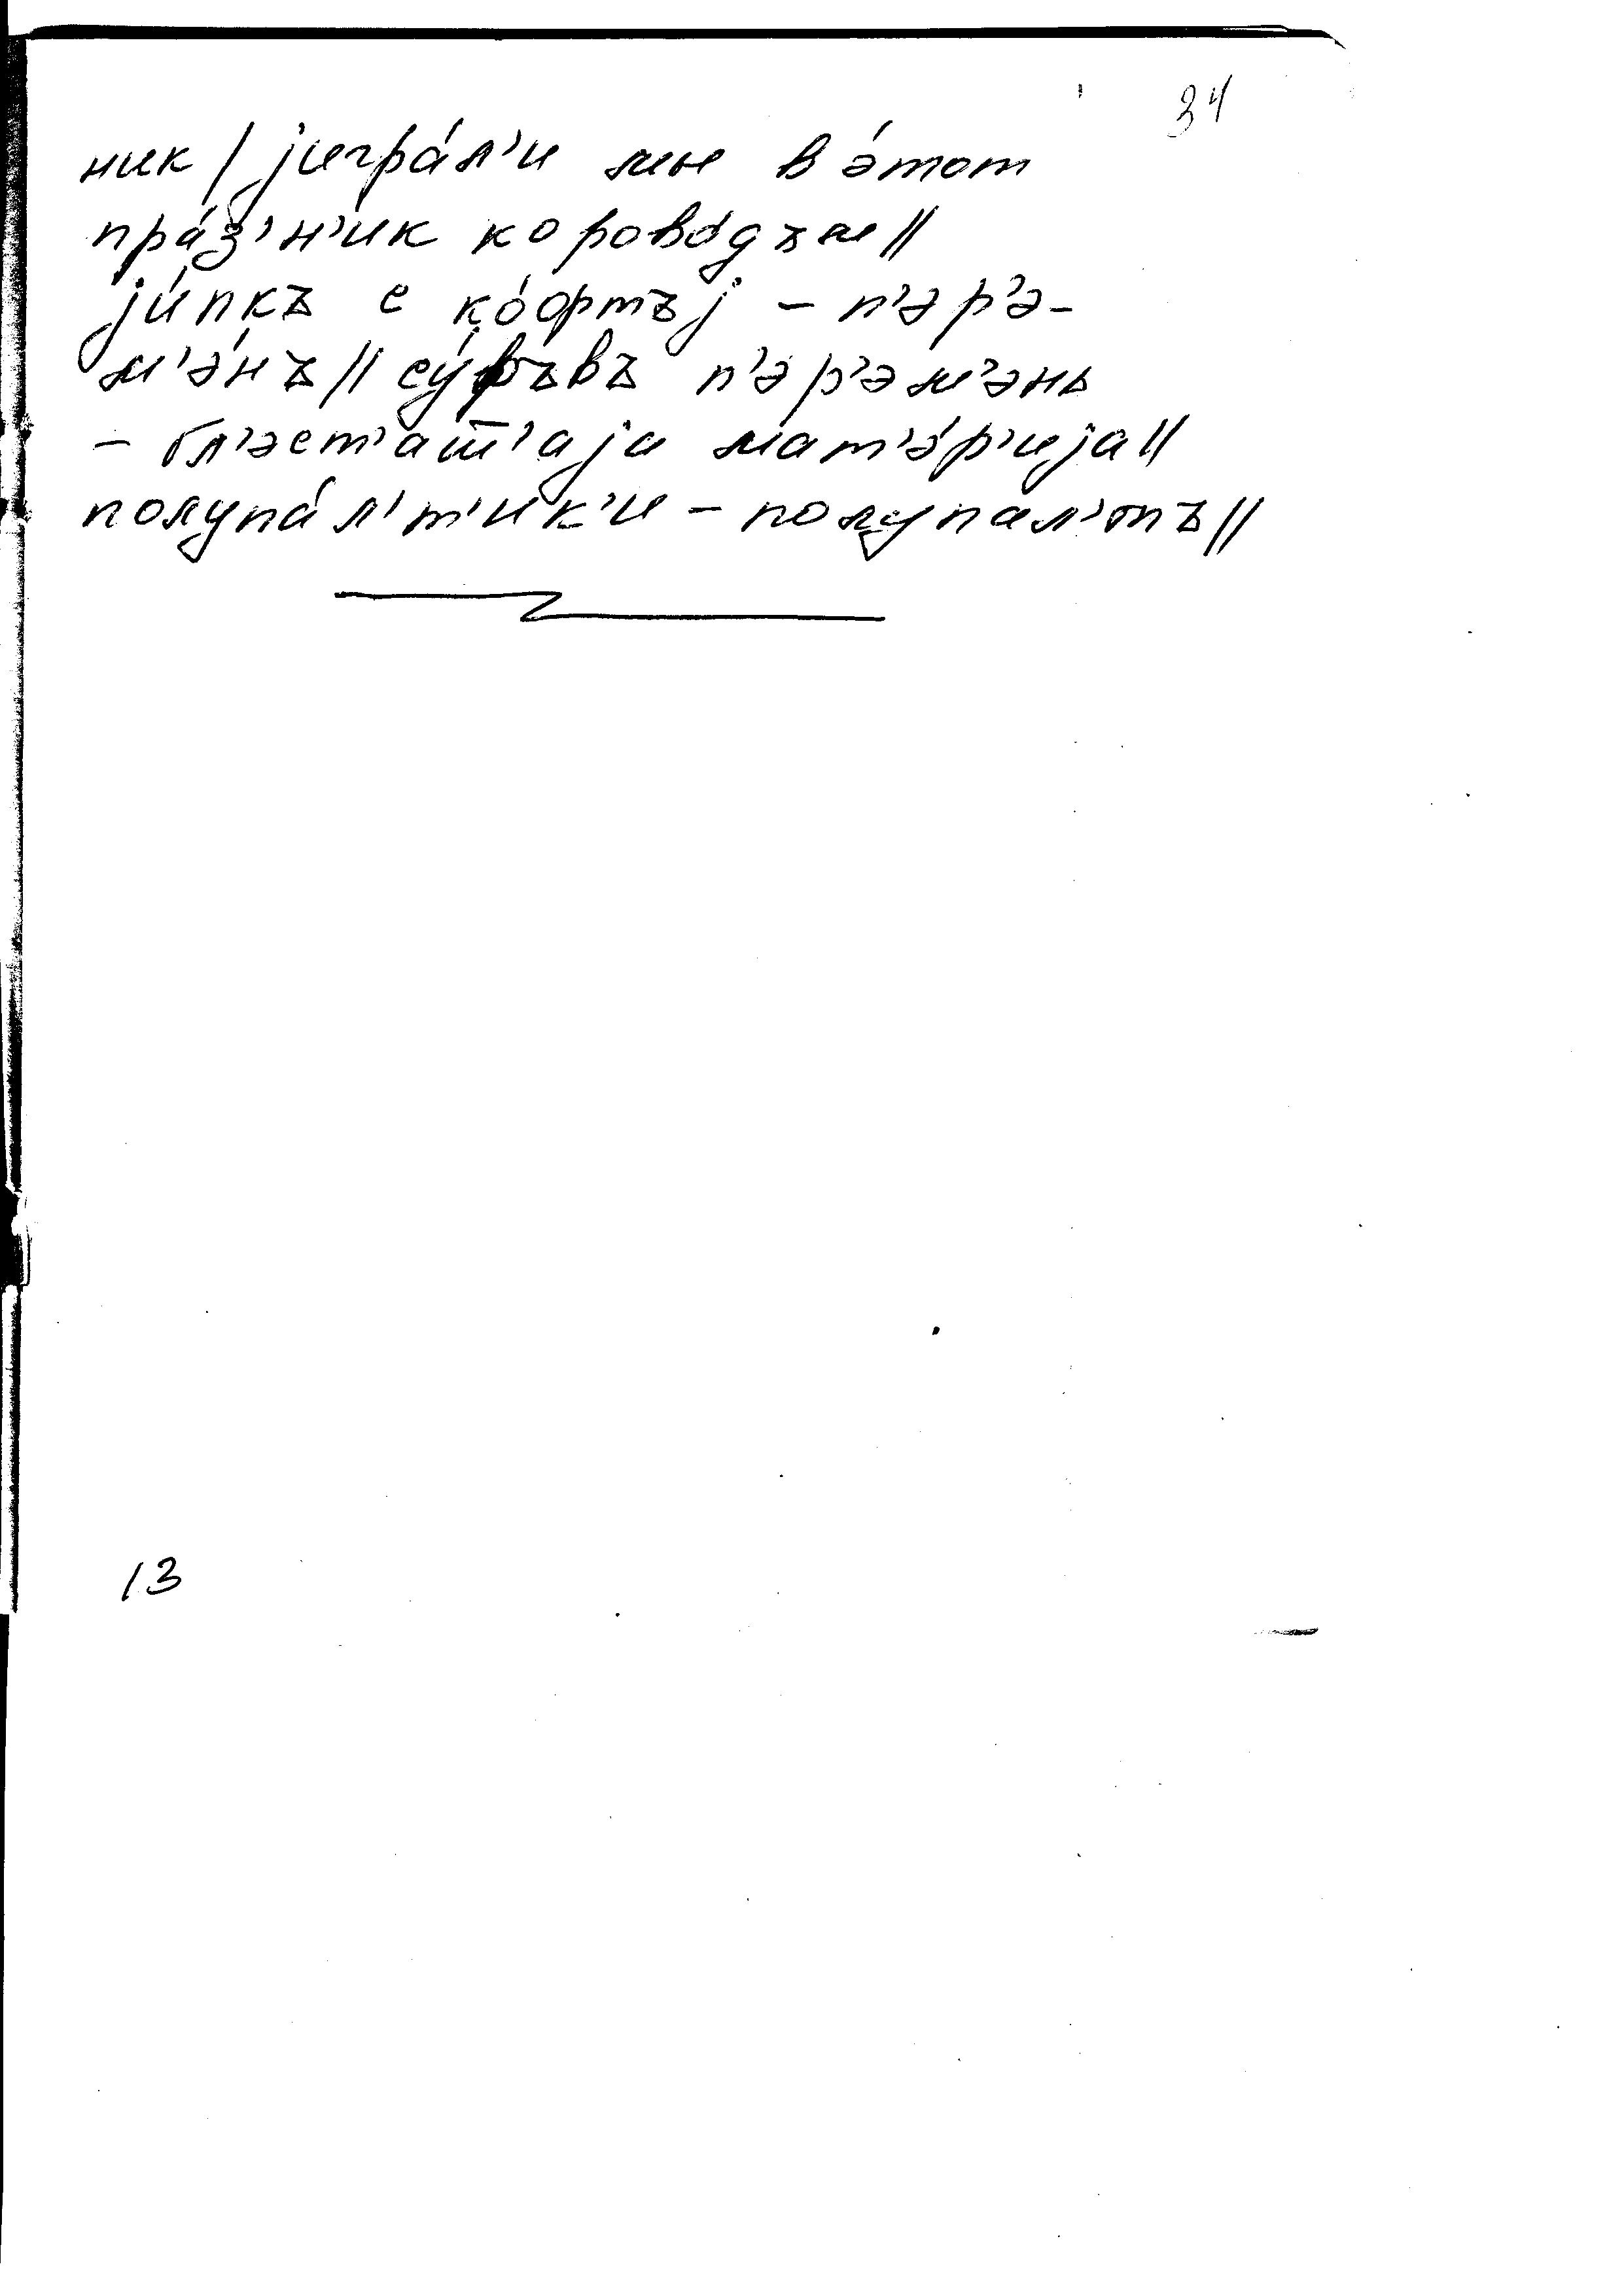 34
ник / јигра́л'и мы в э́тот
пра́з'н'ик корово́дъм //
ји́пкъ с ко́фтъј – п'эр'э-
м'э́нъ // су́ръвъ п'эр'эм'энь
– бл'эст'ат'аја мат'э́р'ија //
полупа́л'т'ик'и – полупал'тъ //
13